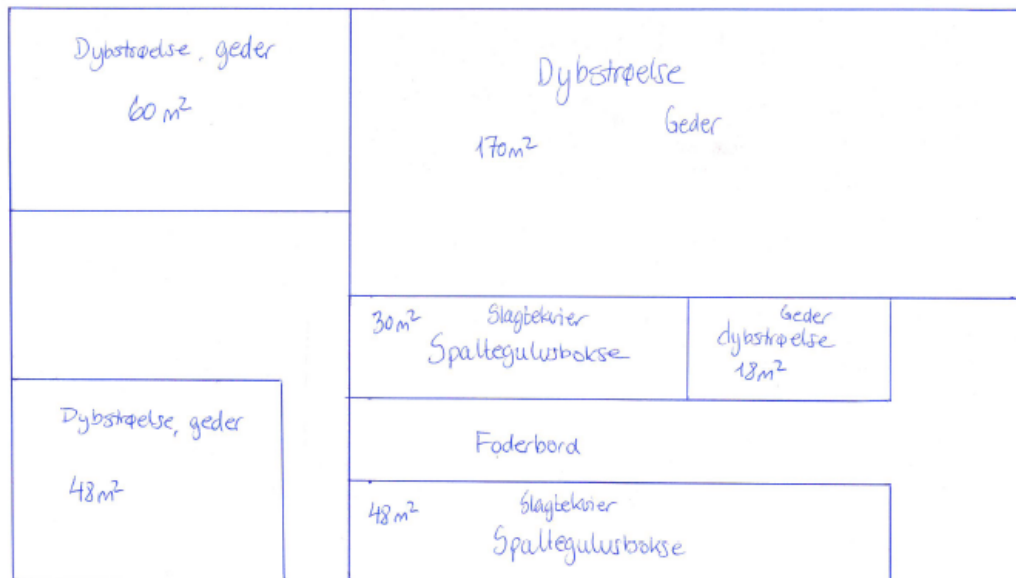 Dybstrøelse, geder
60 m²
Dybstrøelse
Geder
170m²
30m² Slagtekvier
Spaltegulvsbokse
Geder
dybstrøelse
18m²
Dybstrøelse, geder
48m²
Foderbord
48m² Slagtekvier
Spaltegulvsbokse